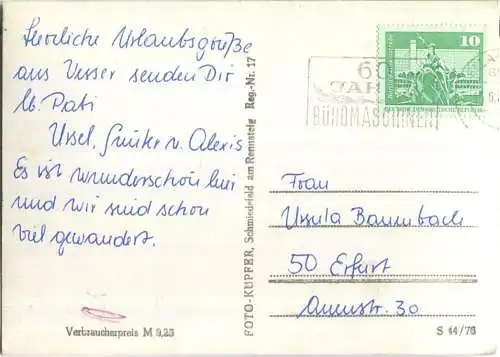 Herzliche Urlaubsgrüße
aus Vesser senden Dir
lb. Pati
Ursel, Günter u. Alexis
Es ist wunderschön hier
und wir sind schon
viel gewandert.
Verbraucherpreis M 0,25
FOTO-KUPFER, Schmiedefeld am Rennsteig Reg.-Nr. 17
10
60
JAHRE
BÜROMASCHINEN
Frau
Ursula Baumbach
50 Erfurt
Annenstr. 30
S 44/76